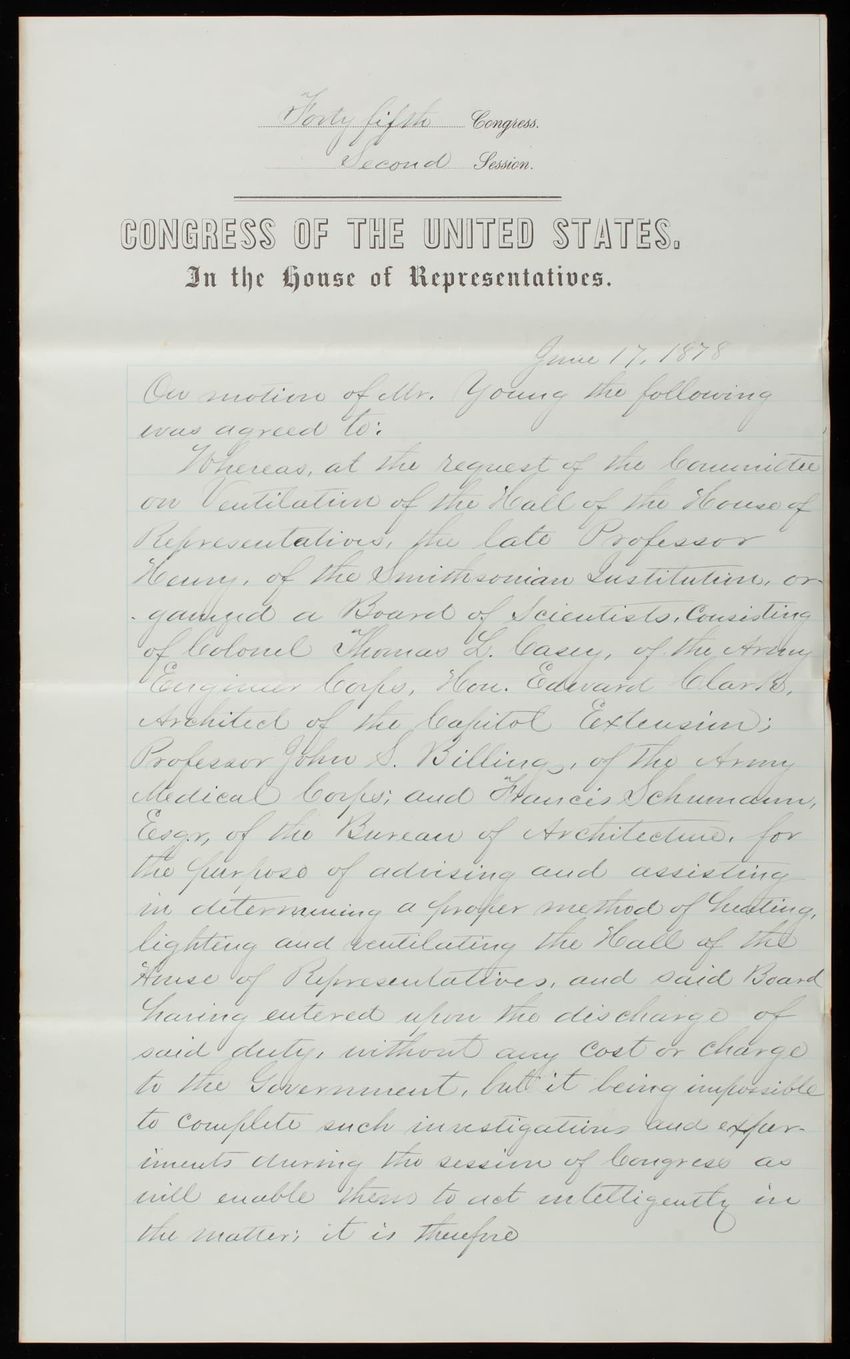 Forty fifth Congress.
Second Session.
CONGRESS OF THE UNITED STATES.
In the House of Representatives.
June 17, 1878
On motion of Mr. Young the following
was agreed to:
Whereas, at the request of the Committee
on Ventilation of the Hall of the House of
Representatives, the late Professor
Henry, of the Smithsonian Institution, or-
-ganized a Board of Scientists, Consisting
of Colonel Thomas L. Casey, of the Army
Engineer Corps, Hon. Edward Clark,
Architect of the Capitol Extension;
Professor John S. Billings, of the Army
Medical Corps; and Francis Schumann,
Esqr, of the Bureau of Architecture, for
the purpose of advising and assisting
in determining a proper method of heating,
lighting and ventilating the Hall of the
House of Representatives, and said Board
having entered upon the discharge of
said duty, without any cost or charge
to the Government, but it being impossible
to complete such investigations and exper-
iments during the session of Congress as
will enable them to act intelligently in
the matter; it is therefore